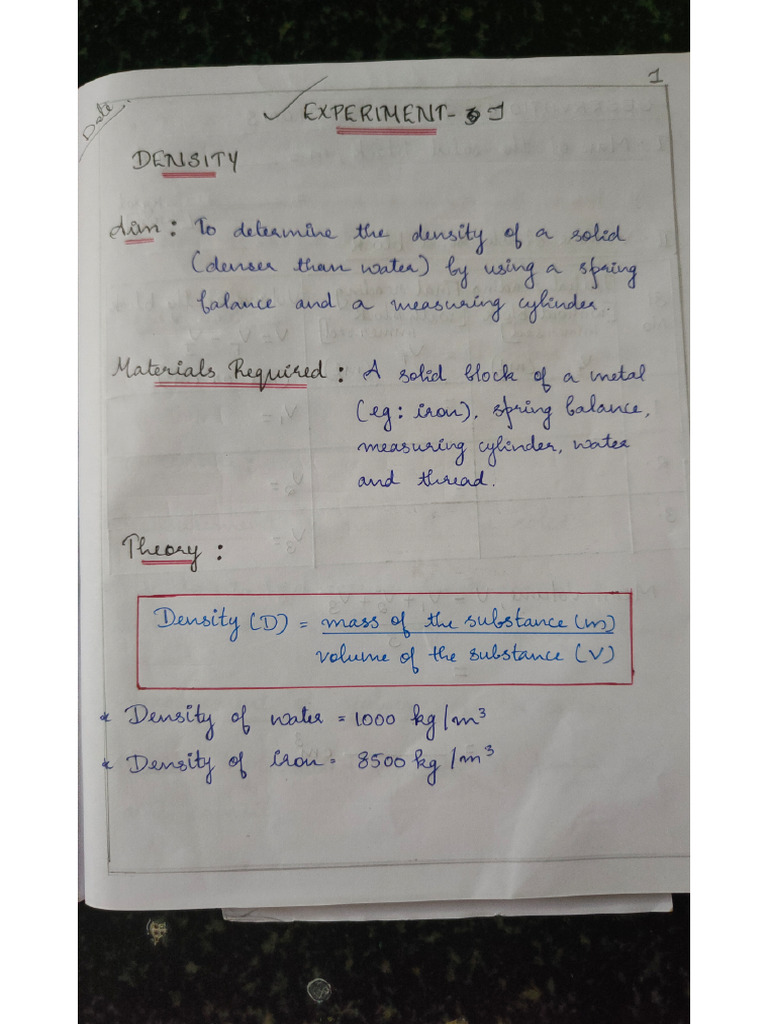 1
Date.
✓ EXPERIMENT- 1
DENSITY
Aim : To determine the density of a solid
(denser than water) by using a spring
balance and a measuring cylinder.
Materials Required : A solid block of a metal
(eg: iron), spring balance,
measuring cylinder, water
and thread.
Theory :
Density (D) = mass of the substance (m)
volume of the substance (V)
* Density of water = 1000 kg/m³
* Density of iron = 8500 kg/m³